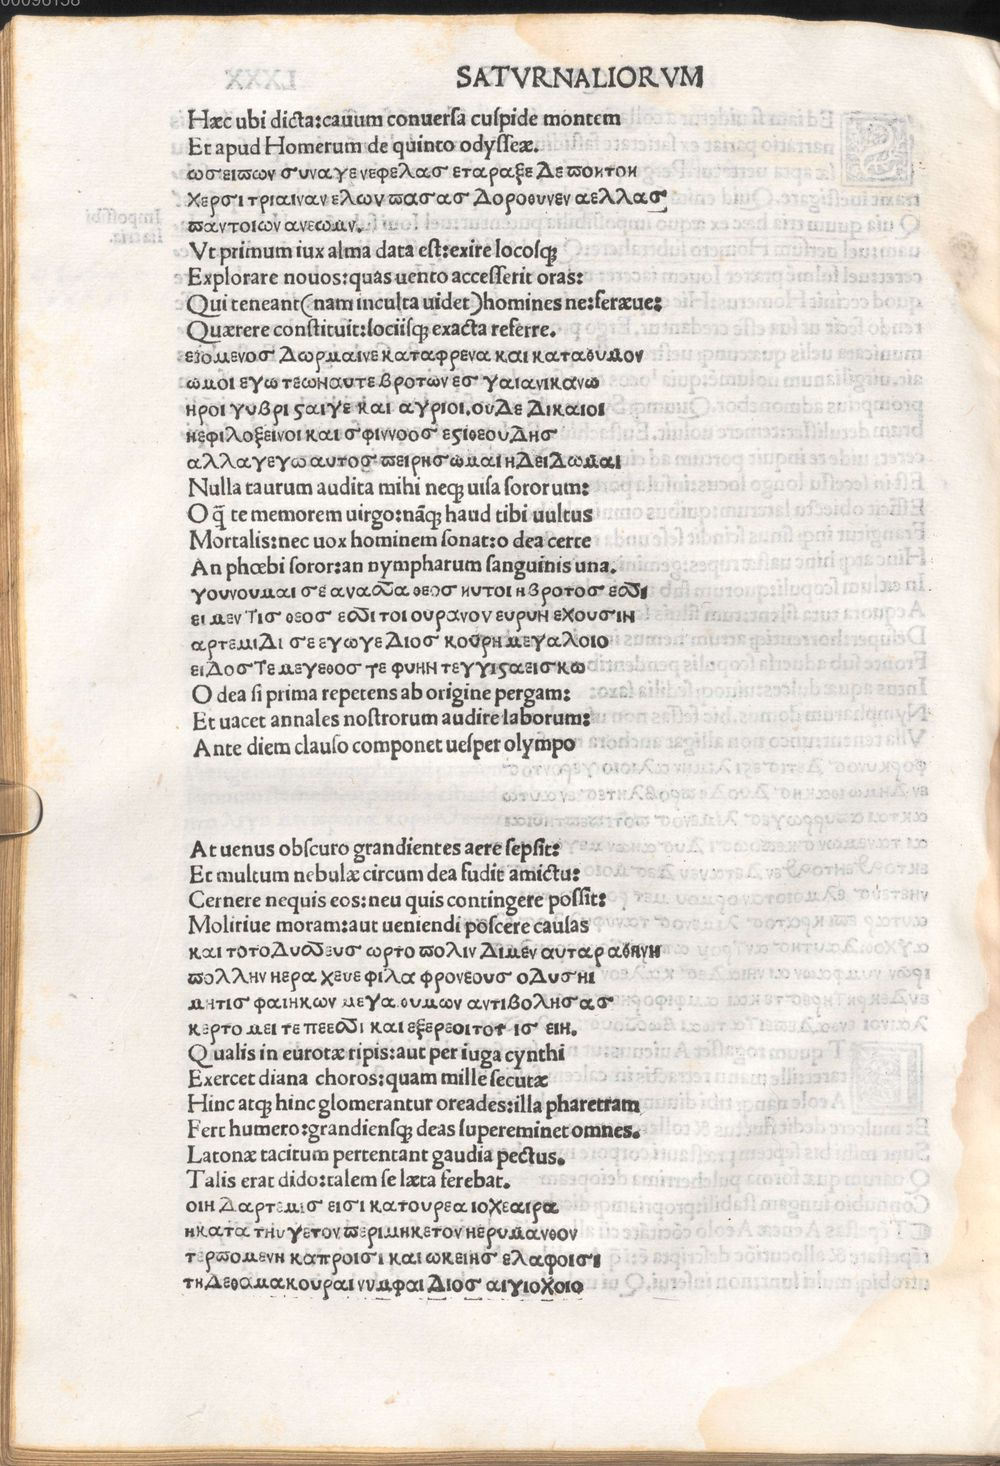 SATVRNALIORVM
Hæc ubi dicta:cauum conuersa cuspide montem
Et apud Homerum de quinto odysseæ.
ωσ ειπων συναγε νεφελασ εταραξε Δε ποντον
Χερσι τριαιναν ελων πασασ Δοροθυνεν αελλασ
παντοιων ανεωμν.
Vt primum iux alma data est:exire locosq;
Explorare nouos:quas uento accesserit oras:
Qui teneant(nam inculta uidet)homines ne:feræue:
Quærere constituit:sociisq; exacta referre.
εζομενοσ Δωρμαινε καταφρενα και καταθυμον
ωμοι εγω τεωναυτε βροτων εσ γαιανικανω
ηροι γυβρι ϛαιγε και αγριοι.ουΔε Δικαιοι
ηεφιλοξεινοι και σφιννοοσ εϛιθεουΔησ
αλλαγεγωαυτοσ πειρησωμαι ηΔειΔωμαι
Nulla taurum audita mihi neq; uisa sororum:
O q̃ te memorem uirgo:nãq; haud tibi uultus
Mortalis:nec uox hominem sonat:o dea certe
An phœbi soror:an nympharum sanguinis una.
γουνουμαι σε ανασσα θεοσ νυτοι η βροτοσ εσσι
ει μεν τισ θεοσ εσσι τοι ουρανον ευρυν εχουσιν
αρτεμιΔι σε εγωγε Διοσ κουρη μεγαλοιο
ειΔοσ τε μεγεθοσ τε φυην τεγγιϛαεισκω
O dea si prima repetens ab origine pergam:
Et uacet annales nostrorum audire laborum:
Ante diem clauso componet uesper olympo
At uenus obscuro grandientes aere sepsit:
Et multum nebulæ circum dea fudit amictu:
Cernere nequis eos:neu quis contingere possit:
Moliriue moram:aut ueniendi poscere causas
και τοτοΔυσσευσ ωρτο πολιν Διμεν αυταρ αθηνη
πολλην ηερα χευε φιλα φρονεουσ οΔυσηι
μητισ φαιηκων μεγα θυμων αντιβολησασ
κερτο μει τε πεεσσι και εξερεοιτοτ ισ ειη.
Qualis in eurotæ ripis:aut per iuga cynthi
Exercet diana choros:quam mille secutæ
Hinc atq; hinc glomerantur oreades:illa pharetram
Fert humero:grandiensq; deas supereminet omnes.
Latonæ tacitum pertentant gaudia pectus.
Talis erat dido:talem se læta ferebat.
οιη Δαρτεμισ εισι κατουρεα ιοχεαιρα
ηκατα τηυγετον περιμηκετον ηερυμανθον
τερπομενη καπροισι και ωκειησ ελαφοισι
τηΔεθαμακουραι νυμφαι Διοσ αιγιοχοιο